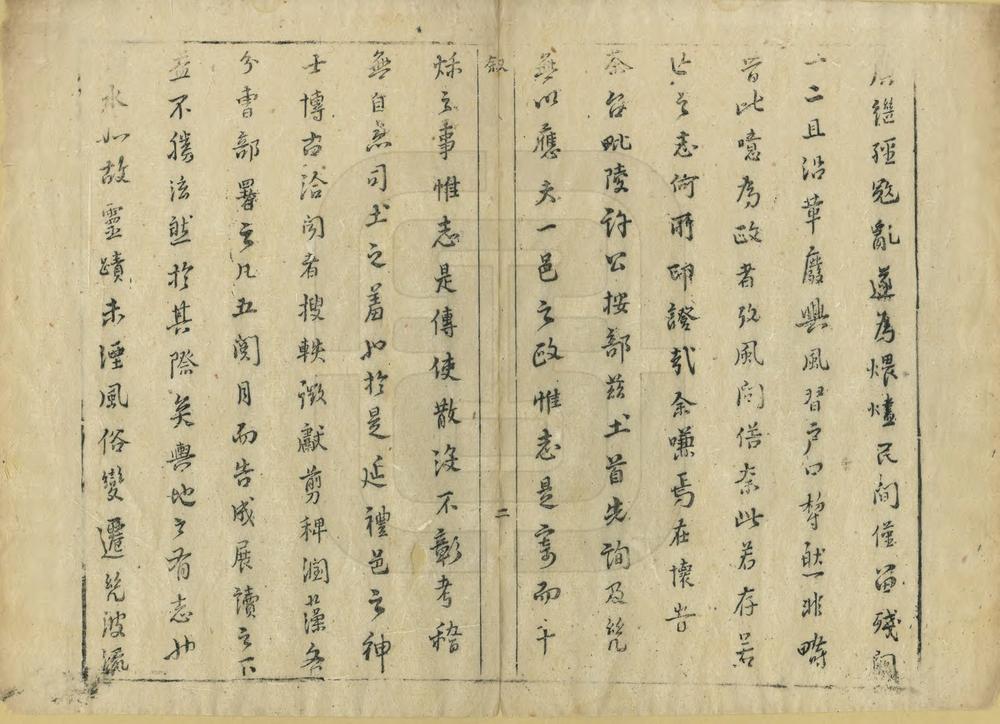 繼經兵亂遂為煨燼民間僅留殘闕
一二且沿革廢興風習戶口犂然非疇
昔此噫為政者攷風問俗奈此若存若
亡之志何所印證哉余嘅焉在懷昔
茶台毗陵許公按部茲土首先詢及兟
無以應夫一邑之政惟志是寄而千
敘
二
穌之事惟志是傳使散沒不彰考稽
無自亦司土之羞也於是延禮邑之神
士博古洽聞者搜軼徵獻剪稗潤藻各
分曹部署之凡五閱月而告成展讀之下
益不勝泫然於其際矣輿地之有志也
水也故靈蹟未湮風俗變遷兟波流